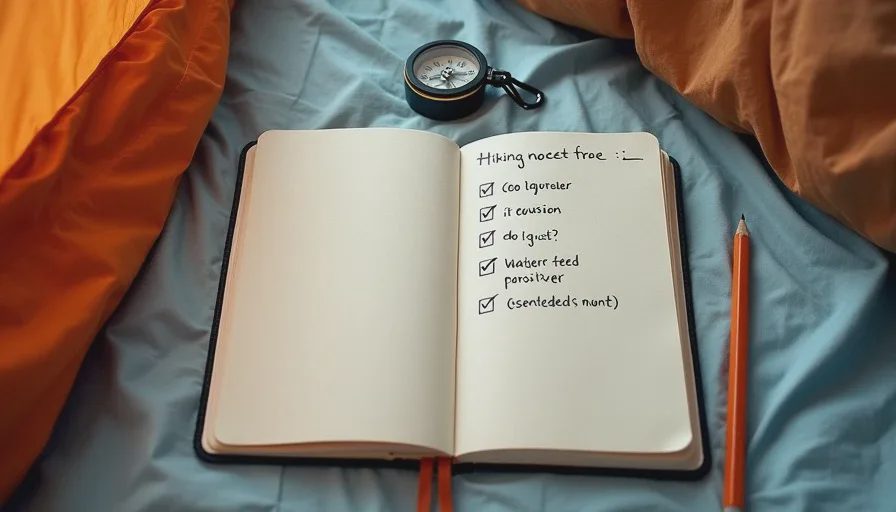 Hiking nocet froe :__
(oo lqureler
it cousion
do lgust?
Waberr feed
porsitver
(sentededs nunt)